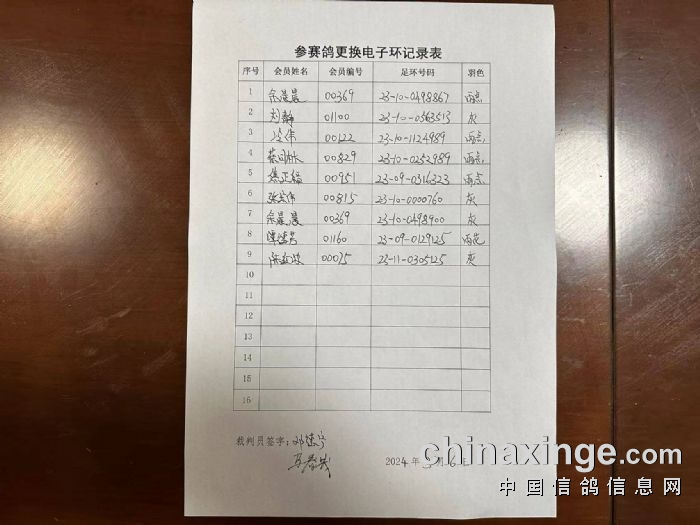 参赛鸽更换电子环记录表
序号 会员姓名 会员编号 足环号码 羽色
1 余晨晨 00369 23-10-0498867 雨点
2 刘静 01100 23-10-0563513 灰
3 冷伟 00122 23-10-1124989 雨点
4 00829 23-10-0252989 雨点
5 00951 23-09-0316323 雨点
6 00815 23-10-0000760 灰
7 余晨晨 00369 23-10-0498900 灰
8 01160 23-09-0129125 雨花
9 00075 23-11-0305125 灰
10
11
12
13
14
15
16
裁判员签字:
2024 年 月
chinaxinge.com
中国信鸽信息网